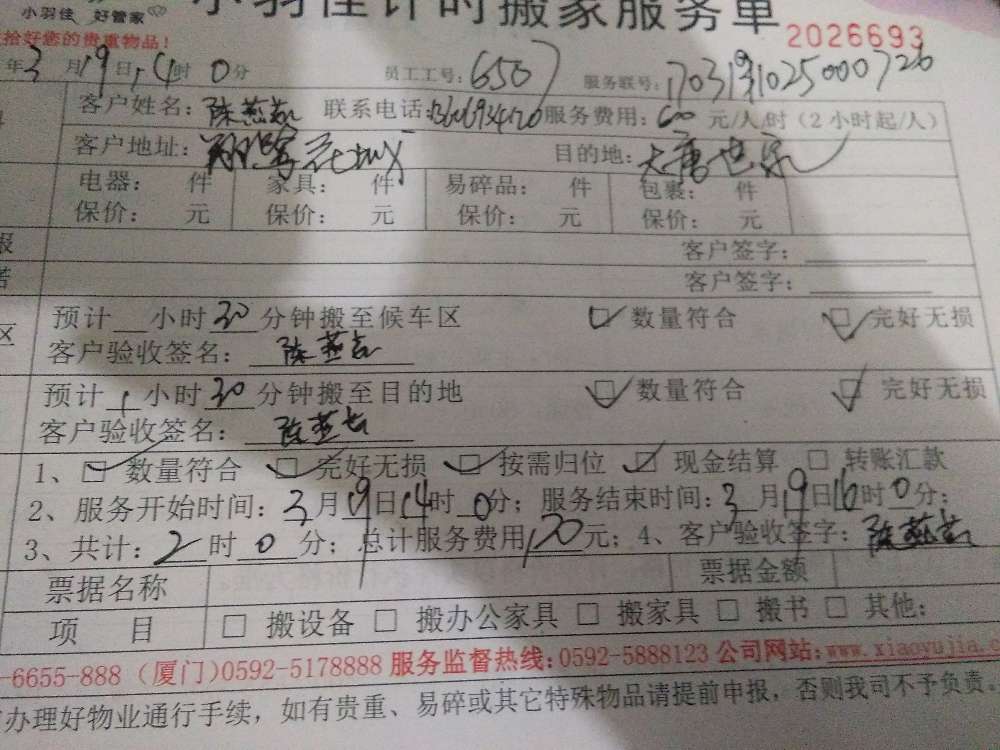 小羽佳 好管家
小羽佳计时搬家服务单
拾好您的贵重物品!
2026693
年3月19日14时0分 员工工号:6507 服务联号:1703191025000726
客户姓名: 联系电话: 服务费用:60元/人/时(2小时起/人)
客户地址: 目的地:大唐世家
电器: 件 家具: 件 易碎品: 件 包裹: 件
保价: 元 保价: 元 保价: 元 保价: 元
报 客户签字:
客户签字:
区 预计 小时30分钟搬至候车区 数量符合 完好无损
客户验收签名:
预计 小时30分钟搬至目的地 数量符合 完好无损
客户验收签名:
1、 数量符合 完好无损 按需归位 现金结算 转账汇款
2、服务开始时间:3月19日14时0分;服务结束时间:3月19日16时0分;
3、共计:2时0分;总计服务费用120元;4、客户验收签字:
票据名称 票据金额
项 目 搬设备 搬办公家具 搬家具 搬书 其他:
-6655-888 (厦门)0592-5178888 服务监督热线:0592-5888123 公司网站:www.xiaoyujia.c
办理好物业通行手续,如有贵重、易碎或其它特殊物品请提前申报,否则我司不予负责。